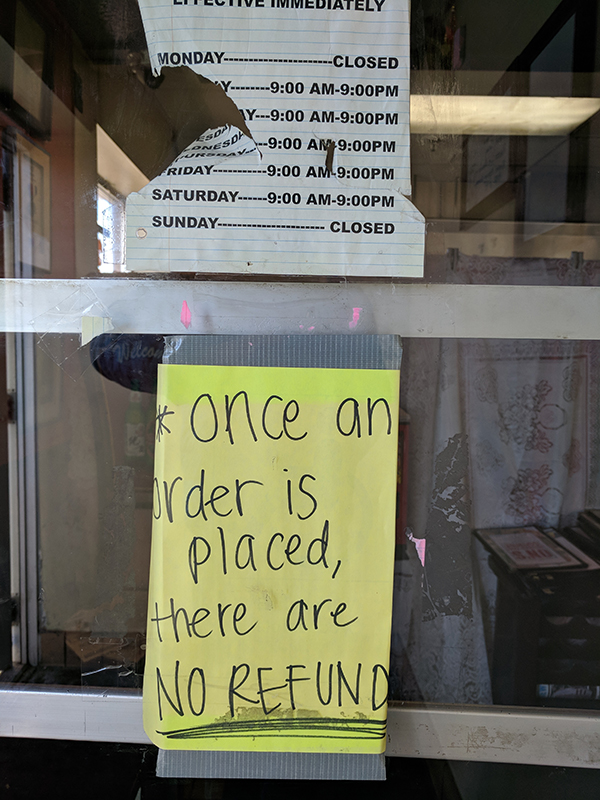 EFFECTIVE IMMEDIATELY
MONDAY---------------------CLOSED
Y-------9:00 AM-9:00PM
AY---9:00 AM-9:00PM
ESDAY--9:00 AM-9:00PM
FRIDAY------9:00 AM-9:00PM
SATURDAY------9:00 AM-9:00PM
SUNDAY--------------------- CLOSED
Welco
* once an
order is
placed,
there are
NO REFUND